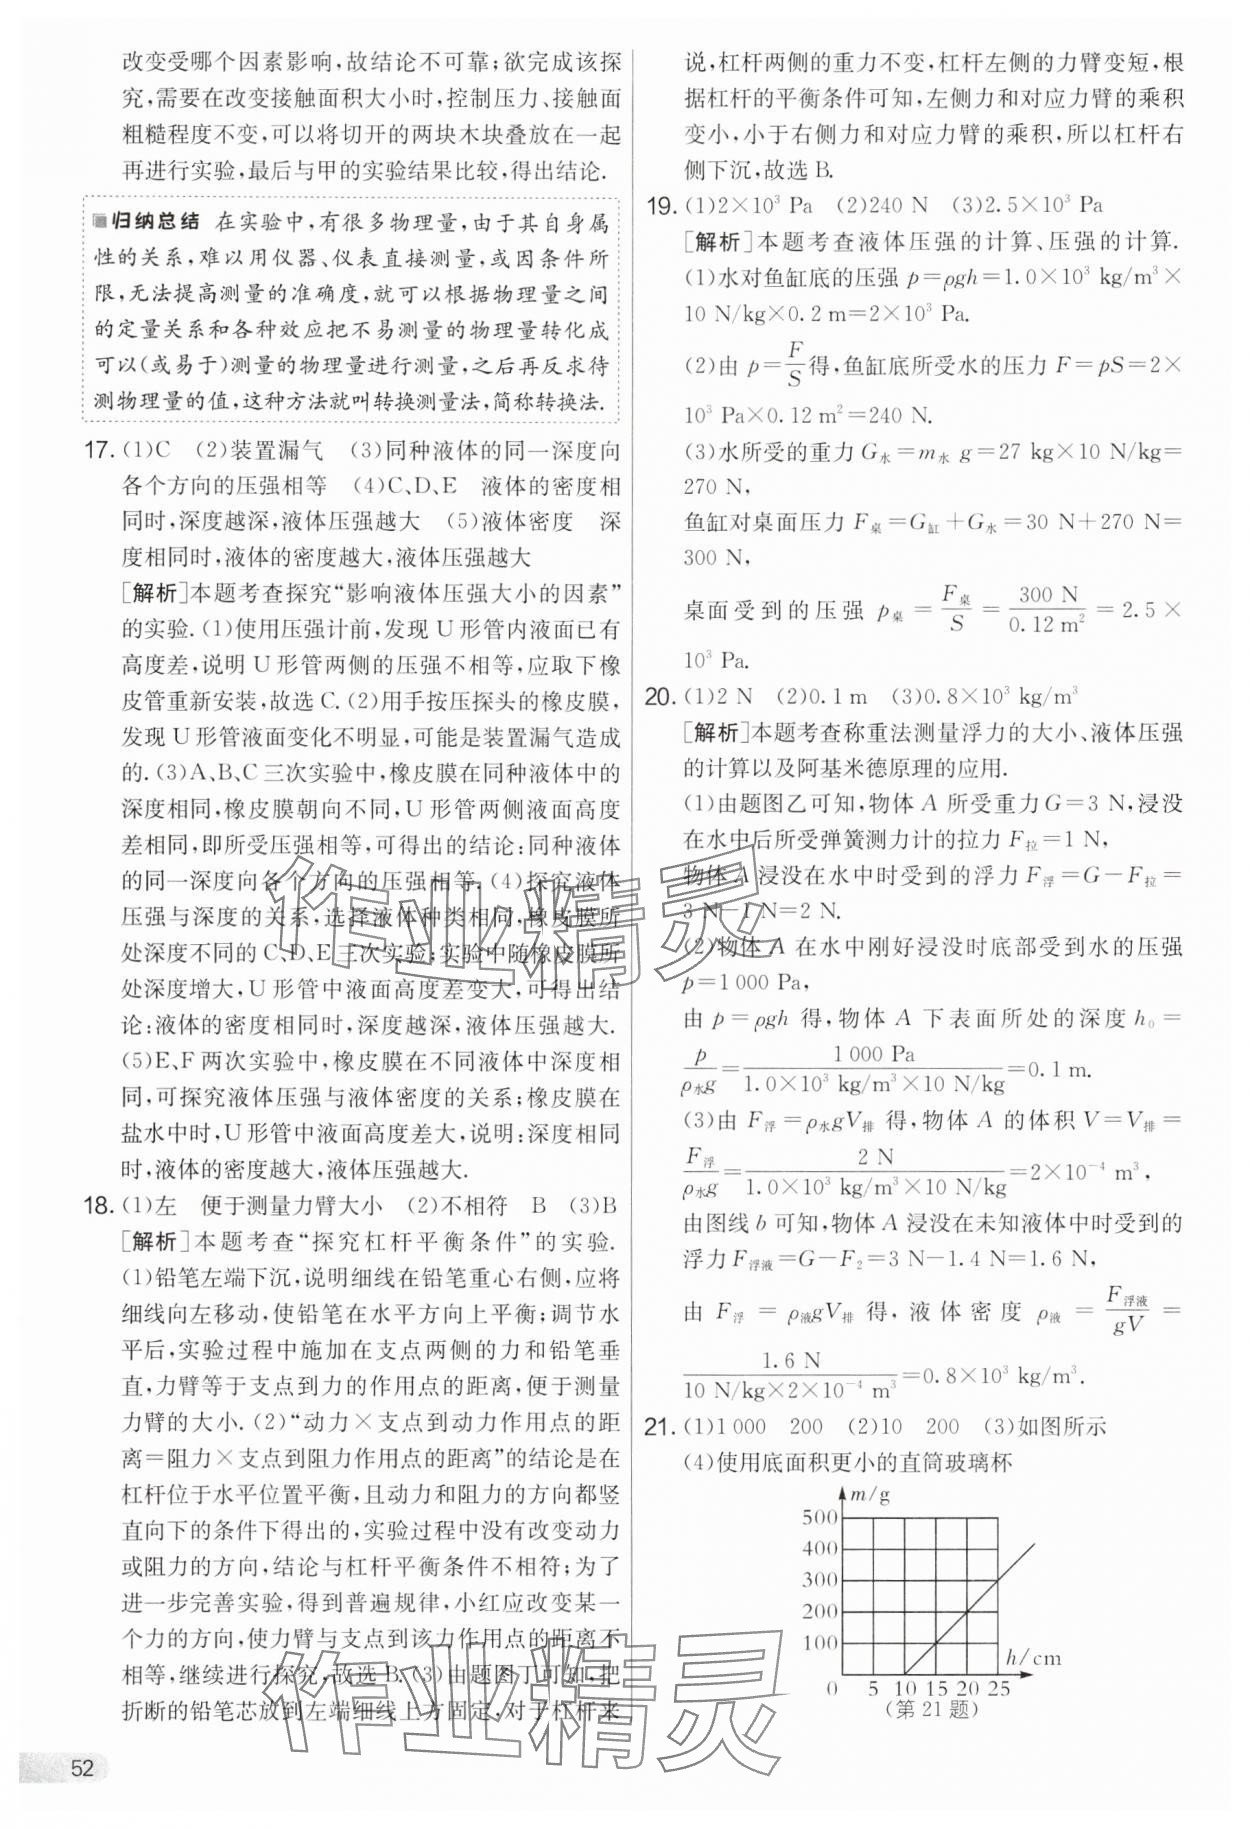 改变受哪个因素影响,故结论不可靠;欲完成该探
究,需要在改变接触面积大小时,控制压力、接触面
粗糙程度不变,可以将切开的两块木块叠放在一起
再进行实验,最后与甲的实验结果比较,得出结论.
归纳总结 在实验中,有很多物理量,由于其自身属
性的关系,难以用仪器、仪表直接测量,或因条件所
限,无法提高测量的准确度,就可以根据物理量之间
的定量关系和各种效应把不易测量的物理量转化成
可以(或易于)测量的物理量进行测量,之后再反求待
测物理量的值,这种方法就叫转换测量法,简称转换法.
17. (1)C (2)装置漏气 (3)同种液体的同一深度向
各个方向的压强相等 (4)C、D、E 液体的密度相
同时,深度越深,液体压强越大 (5)液体密度 深
度相同时,液体的密度越大,液体压强越大
[解析]本题考查探究“影响液体压强大小的因素”
的实验.(1)使用压强计前,发现 U 形管内液面已有
高度差,说明 U 形管两侧的压强不相等,应取下橡
皮管重新安装,故选 C.(2)用手按压探头的橡皮膜,
发现 U 形管液面变化不明显,可能是装置漏气造成
的.(3)A、B、C 三次实验中,橡皮膜在同种液体中的
深度相同,橡皮膜朝向不同,U 形管两侧液面高度
差相同,即所受压强相等,可得出的结论:同种液体
的同一深度向各个方向的压强相等.(4)探究液体
压强与深度的关系,选择液体种类相同,橡皮膜所
处深度不同的 C、D、E 三次实验;实验中随橡皮膜所
处深度增大,U 形管中液面高度差变大,可得出结
论:液体的密度相同时,深度越深,液体压强越大.
(5)E、F 两次实验中,橡皮膜在不同液体中深度相
同,可探究液体压强与液体密度的关系;橡皮膜在
盐水中时,U 形管中液面高度差大,说明:深度相同
时,液体的密度越大,液体压强越大.
18. (1)左 便于测量力臂大小 (2)不相符 B (3)B
[解析]本题考查“探究杠杆平衡条件”的实验.
(1)铅笔左端下沉,说明细线在铅笔重心右侧,应将
细线向左移动,使铅笔在水平方向上平衡;调节水
平后,实验过程中施加在支点两侧的力和铅笔垂
直,力臂等于支点到力的作用点的距离,便于测量
力臂的大小.(2)“动力×支点到动力作用点的距
离=阻力×支点到阻力作用点的距离”的结论是在
杠杆位于水平位置平衡,且动力和阻力的方向都竖
直向下的条件下得出的,实验过程中没有改变动力
或阻力的方向,结论与杠杆平衡条件不相符;为了
进一步完善实验,得到普遍规律,小红应改变某一
个力的方向,使力臂与支点到该力作用点的距离不
相等,继续进行探究,故选 B.(3)由题图丁可知,把
折断的铅笔芯放到左端细线上方固定,对于杠杆来
说,杠杆两侧的重力不变,杠杆左侧的力臂变短,根
据杠杆的平衡条件可知,左侧力和对应力臂的乘积
变小,小于右侧力和对应力臂的乘积,所以杠杆右
侧下沉,故选 B.
19. (1)2×10³ Pa (2)240 N (3)2.5×10³ Pa
[解析]本题考查液体压强的计算、压强的计算.
(1)水对鱼缸底的压强 p=ρgh=1.0×10³ kg/m³×
10 N/kg×0.2 m=2×10³ Pa.
(2)由 p=F/S得,鱼缸底所受水的压力 F=pS=2×
10³ Pa×0.12 m²=240 N.
(3)水所受的重力 G水=m水 g=27 kg×10 N/kg=
270 N,
鱼缸对桌面压力 F桌=G缸+G水=30 N+270 N=
300 N,
桌面受到的压强 p桌=F桌/S=300 N/0.12 m²=2.5×
10³ Pa.
20. (1)2 N (2)0.1 m (3)0.8×10³ kg/m³
[解析]本题考查称重法测量浮力的大小、液体压强
的计算以及阿基米德原理的应用.
(1)由题图乙可知,物体 A 所受重力 G=3 N,浸没
在水中后所受弹簧测力计的拉力 F拉=1 N,
物体 A 浸没在水中时受到的浮力 F浮=G-F拉=
3 N-1 N=2 N.
(2)物体 A 在水中刚好浸没时底部受到水的压强
p=1 000 Pa,
由 p=ρgh 得,物体 A 下表面所处的深度 h₀=
p/ρ水g=1 000 Pa/1.0×10³ kg/m³×10 N/kg=0.1 m.
(3)由 F浮=ρ水gV排 得,物体 A 的体积 V=V排=
F浮/ρ水g=2 N/1.0×10³ kg/m³×10 N/kg=2×10⁻⁴ m³,
由图线 b 可知,物体 A 浸没在未知液体中时受到的
浮力 F浮液=G-F₂=3 N-1.4 N=1.6 N,
由 F浮=ρ液gV排 得,液体密度 ρ液=F浮液/gV=
1.6 N/10 N/kg×2×10⁻⁴ m³=0.8×10³ kg/m³.
21. (1)1 000 200 (2)10 200 (3)如图所示
(4)使用底面积更小的直筒玻璃杯
m/g
500
400
300
200
100
h/cm
0 5 10 15 20 25
(第 21 题)
作业精灵
作业精灵
52